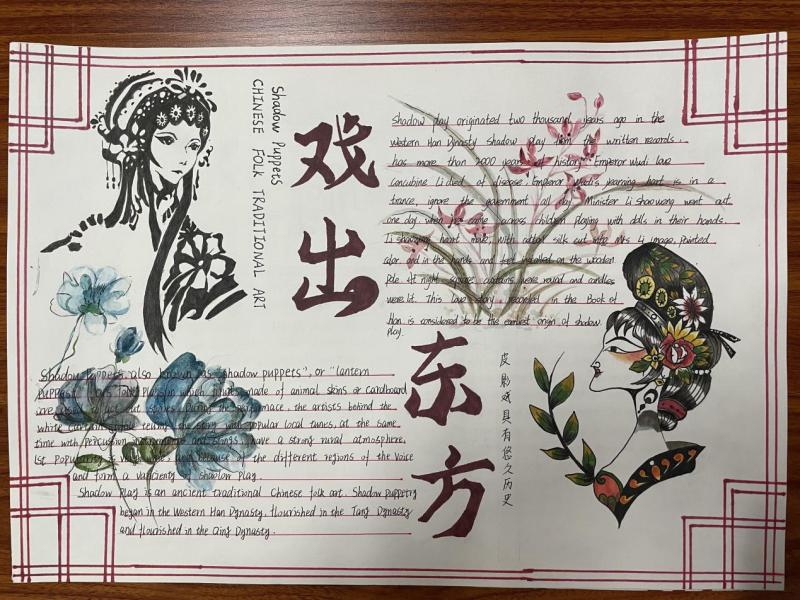 Shadow Puppets
CHINESE FOLK TRADITIONAL ART
戏出东方
shadow day originated two thousand years ago in the
Western Han Dynasty shadow play from the written records.
has more than 2000 years of history. Emperor Wudi love
concubine Li died of disease, Emperor Wudi's yearning hart is in a
trance, ignore the government all day. Minister Li Shaowong went out
one day, when he came across children playing with dolls in their hands.
Li shaowong heart move, with cotton silk cut into Mrs Li image, painted
color and in the hands and feet installed on the wooden
pole. At night square curtains were round and candles
were lit. This love story recorded in the Book of
Han is considered to be the earliest origin of shadow
play.
皮影戏具有悠久历史
Shadow Puppets, also known as "shadow puppets", or "lantern
puppets" is a folk play in which figures made of animal skins or cardboard
are used to act out stories. During the performance, the artists behind the
white curtain, telling the story with popular local tunes, at the same
time with percussion instruments and songs, have a strong rural atmosphere,
Ist popularity is and because of the different regions of the voice
and form a of Shadow Play.
Shadow Play is an ancient traditional Chinese folk art. Shadow puppetry
began in the Western Han Dynasty, flourished in the Tang Dynasty
and flourished in the Qing Dynasty.